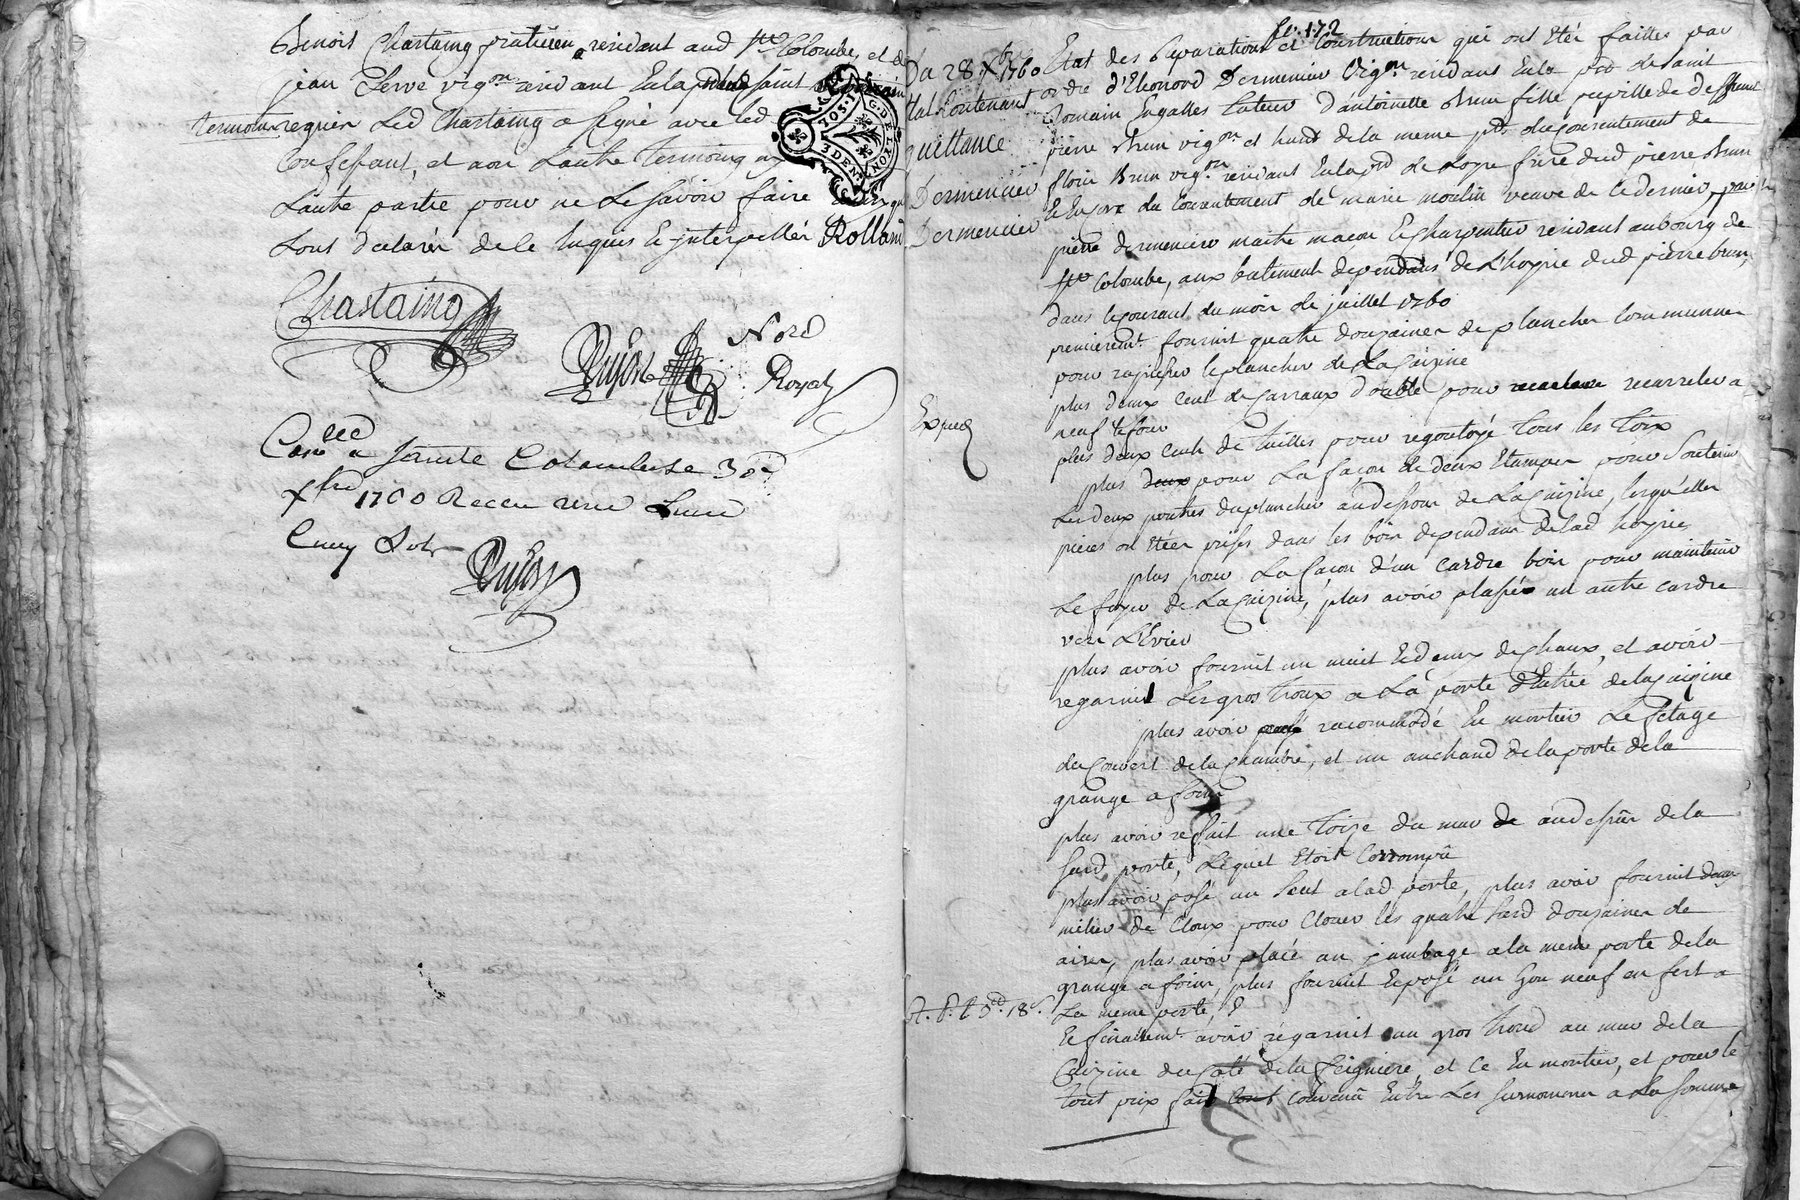 Benoit Chastaing praticien residant aud ste Colombe, et de
jean vigon residant saint
termoins requis Led Chastaing a signé avec led
Confessant, et non Lautre termoing ny
Lautre partie pour ne Le scavoir faire
Lont declaré de ce Enquis & interpellés Rolland
G. DE LYON
3 DEN
Chastaing
Dujast
Nord
Royal
Conlé a Sainte Colombe le 30e
Xbre 1760 Receu
Dujast
fo. 172
Du 28 Xbre 1760
Etat Contenant
quittance
Dermencier
Dermencier
Expied
Etat des Reparations et Constructions qui ont étés faittes par
ordre d'Eleonord Dermencier Vigon residant En la pred de saint
Romain En galles tuteur d'antoinette Brun fille pupille de deffunt
pierre Brun vigon et hund de la meme pds du Consentement de
Brun vigon residant En la pd de Loyre frere dud pierre Brun
& Encore du Consentement de marie moulin veuve de ce dernier, par
pierre dermencier maitre macon & Charpentier residant au bourg de
ste Colombe, aux batiments dependans de L'hoyrie dud pierre brun,
dans le courant du mois de juillet 1760
premierement fournit quatre douzaines de plancher Communes
pour le plancher de La Cuizine
plus deux Cent de Carraux double pour recarreler a
neuf le four
plus deux Cent de tuilles pour regoutoyé tous les toix
plus deux pour La façon de deux Etampes pour Soutenir
Les deux poutres du plancher au dessous de La Cuizine, lesquelles
pieces on étées prises dans les bois dependans de lad hoyrie
plus pour La façon d'un Cardre bois pour maintenir
Le foyer de La Cuizine, plus avoir plassés un autre cardre
vers L'Evier
plus avoir fournit un muit & demy de Chaux, et avoir
regarnit Les gros troux a La porte d'Entrée de la Cuizine
plus avoir racommodé En mortier Le fetage
du Couvert de la Chambre, et un de la porte de la
grange a foin
plus avoir refait une toize du mur de au dessus de la
susd porte, Lequel Etoit Corrompû
plus avoir posé un Seul a lad porte, plus avoir fournit demy
milier de Cloux pour Clouer les quatre susd douzaines de
aies, plus avoir placé un jambage a la meme porte de la
grange a foin, plus fournit & posé un Gon neuf en fert a
La meme porte,
& finallemt avoir regarnit un gros trous au mur de la
Cuizine du Coté de la Seigniere, et Ce En mortier, et pour le
tout prix fait Convenû Entre Les surnommés a La somme